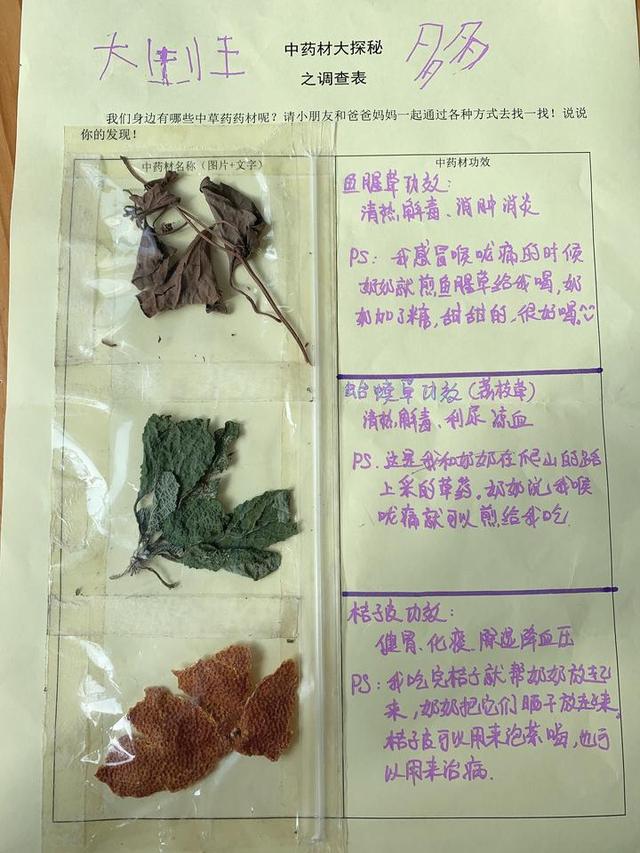 大制王
中药材大探秘
多多
之调查表
我们身边有哪些中草药药材呢？请小朋友和爸爸妈妈一起通过各种方式去找一找！说说
你的发现！
中药材名称（图片+文字）
中药材功效
鱼腥草功效：
清热,解毒、消肿消炎
PS：我感冒喉咙痛的时候
奶奶就煎鱼腥草给我喝,奶
奶加了糖，甜甜的,很好喝。
蛤蟆草功效（荔枝草）
清热,解毒、利尿 凉血
PS. 这是我和奶奶在爬山的路
上采的草药。奶奶说我喉
咙痛就可以煎给我吃
桔子皮功效：
健胃、化痰、降血压
PS：我吃完桔子就帮奶奶放起
来，奶奶把它们晒干放起来。
桔子皮可以用来泡茶喝，也可
以用来治病.